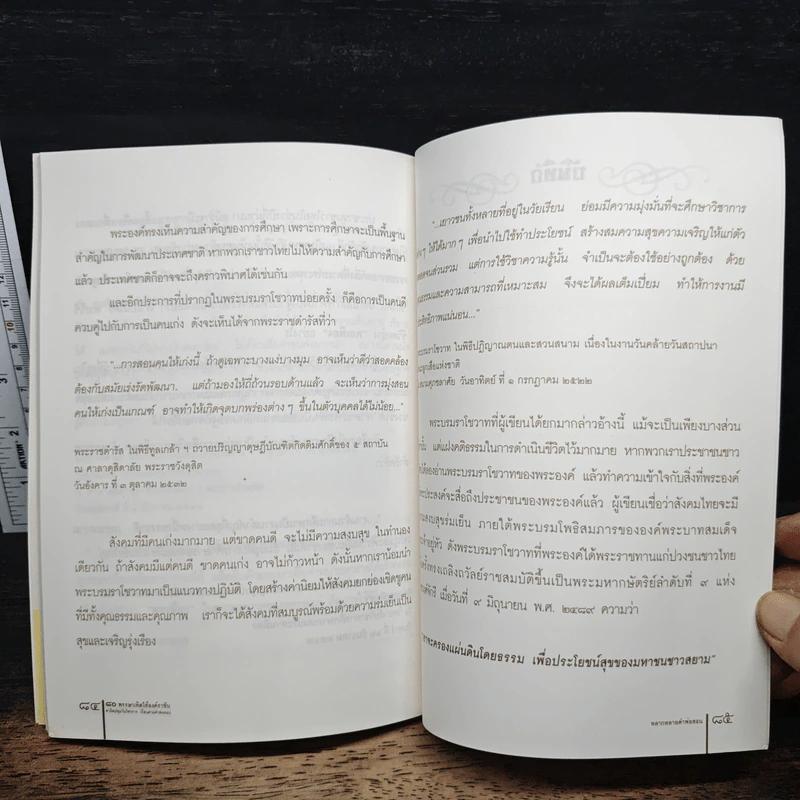 พระองค์ทรงเห็นความสำคัญของการศึกษา เพราะการศึกษาจะเป็นพื้นฐาน
สำคัญในการพัฒนาประเทศชาติ หากพวกเราชาวไทยไม่ให้ความสำคัญกับการศึกษา
แล้ว ประเทศชาติก็อาจจะถึงคราวพินาศได้เช่นกัน
และอีกประการที่ปรากฏในพระบรมราโชวาทบ่อยครั้ง ก็คือการเป็นคนดี
ควบคู่ไปกับการเป็นคนเก่ง ดังจะเห็นได้จากพระราชดำรัสที่ว่า
"...การสอนคนให้เก่งนี้ ถ้าดูเฉพาะบางแง่บางมุม อาจเห็นว่าดีว่าสอดคล้อง
ต้องกับสมัยเร่งรัดพัฒนา. แต่ถ้ามองให้ถี่ถ้วนรอบด้านแล้ว จะเห็นว่าการมุ่งสอน
คนให้เก่งเป็นเกณฑ์ อาจทำให้เกิดจุดบกพร่องต่าง ๆ ขึ้นในตัวบุคคลได้ไม่น้อย..."
พระราชดำรัส ในพิธีทูลเกล้า ฯ ถวายปริญญาดุษฎีบัณฑิตกิตติมศักดิ์ของ ๕ สถาบัน
ณ ศาลาดุสิดาลัย พระราชวังดุสิต
วันอังคาร ที่ ๓ ตุลาคม ๒๕๓๒
สังคมที่มีคนเก่งมากมาย แต่ขาดคนดี จะไม่มีความสงบสุข ในทำนอง
เดียวกัน ถ้าสังคมมีแต่คนดี ขาดคนเก่ง อาจไม่ก้าวหน้า ดังนั้นหากเราน้อมนำ
พระบรมราโชวาทมาเป็นแนวทางปฏิบัติ โดยสร้างค่านิยมให้สังคมยกย่องเชิดชูคน
ที่มีทั้งคุณธรรมและคุณภาพ เราก็จะได้สังคมที่สมบูรณ์พร้อมด้วยความร่มเย็นเป็น
สุขและเจริญรุ่งเรือง
๘๔
๘๐ พรรษาเทิดไท้องค์ราชัน
"...เยาวชนทั้งหลายที่อยู่ในวัยเรียน ย่อมมีความมุ่งมั่นที่จะศึกษาวิชาการ
ต่าง ๆ ให้ได้มาก ๆ เพื่อนำไปใช้ทำประโยชน์ สร้างสมความสุขความเจริญให้แก่ตัว
ตลอดจนส่วนรวม แต่การใช้วิชาความรู้นั้น จำเป็นจะต้องใช้อย่างถูกต้อง ด้วย
และความสามารถที่เหมาะสม จึงจะได้ผลเต็มเปี่ยม ทำให้การงานมี
ประสิทธิภาพแน่นอน..."
พระบรมราโชวาท ในพิธีปฏิญาณตนและสวนสนาม เนื่องในงานวันคล้ายวันสถาปนา
ลูกเสือแห่งชาติ
สนามศุภชลาศัย วันอาทิตย์ ที่ ๑ กรกฎาคม ๒๕๒๒
พระบรมราโชวาทที่ผู้เขียนได้ยกมากล่าวอ้างนี้ แม้จะเป็นเพียงบางส่วน
แต่แฝงคติธรรมในการดำเนินชีวิตไว้มากมาย หากพวกเราประชาชนชาว
ได้ลองอ่านพระบรมราโชวาทของพระองค์ แล้วทำความเข้าใจกับสิ่งที่พระองค์
ประสงค์จะสื่อถึงประชาชนของพระองค์แล้ว ผู้เขียนเชื่อว่าสังคมไทยจะมี
ความสงบสุขร่มเย็น ภายใต้พระบรมโพธิสมภารขององค์พระบาทสมเด็จ
อยู่หัว ดังพระบรมราโชวาทที่พระองค์ได้พระราชทานแก่ปวงชนชาวไทย
ครั้งทรงเถลิงถวัลย์ราชสมบัติขึ้นเป็นพระมหากษัตริย์ลำดับที่ ๙ แห่ง
เมื่อวันที่ ๙ มิถุนายน พ.ศ. ๒๔๘๙ ความว่า
เราจะครองแผ่นดินโดยธรรม เพื่อประโยชน์สุขของมหาชนชาวสยาม"
หลากหลายคำพ่อสอน
๘๕